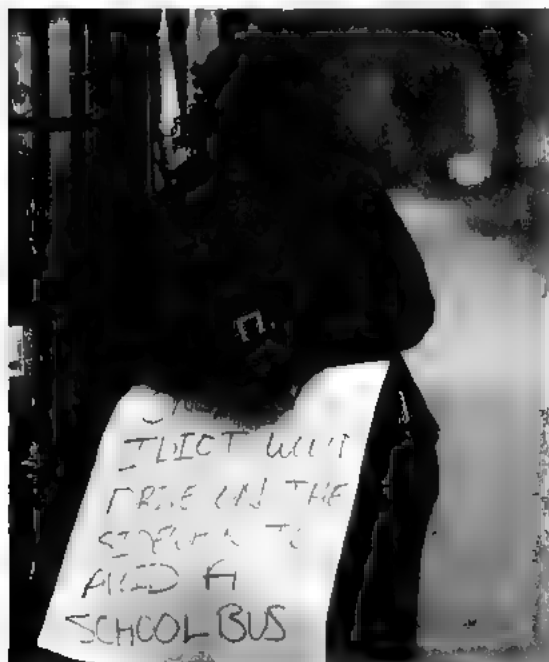 IDIOT WOULD
DRIVE ON THE
SIDEWALK TO
AVOID A
SCHOOL BUS